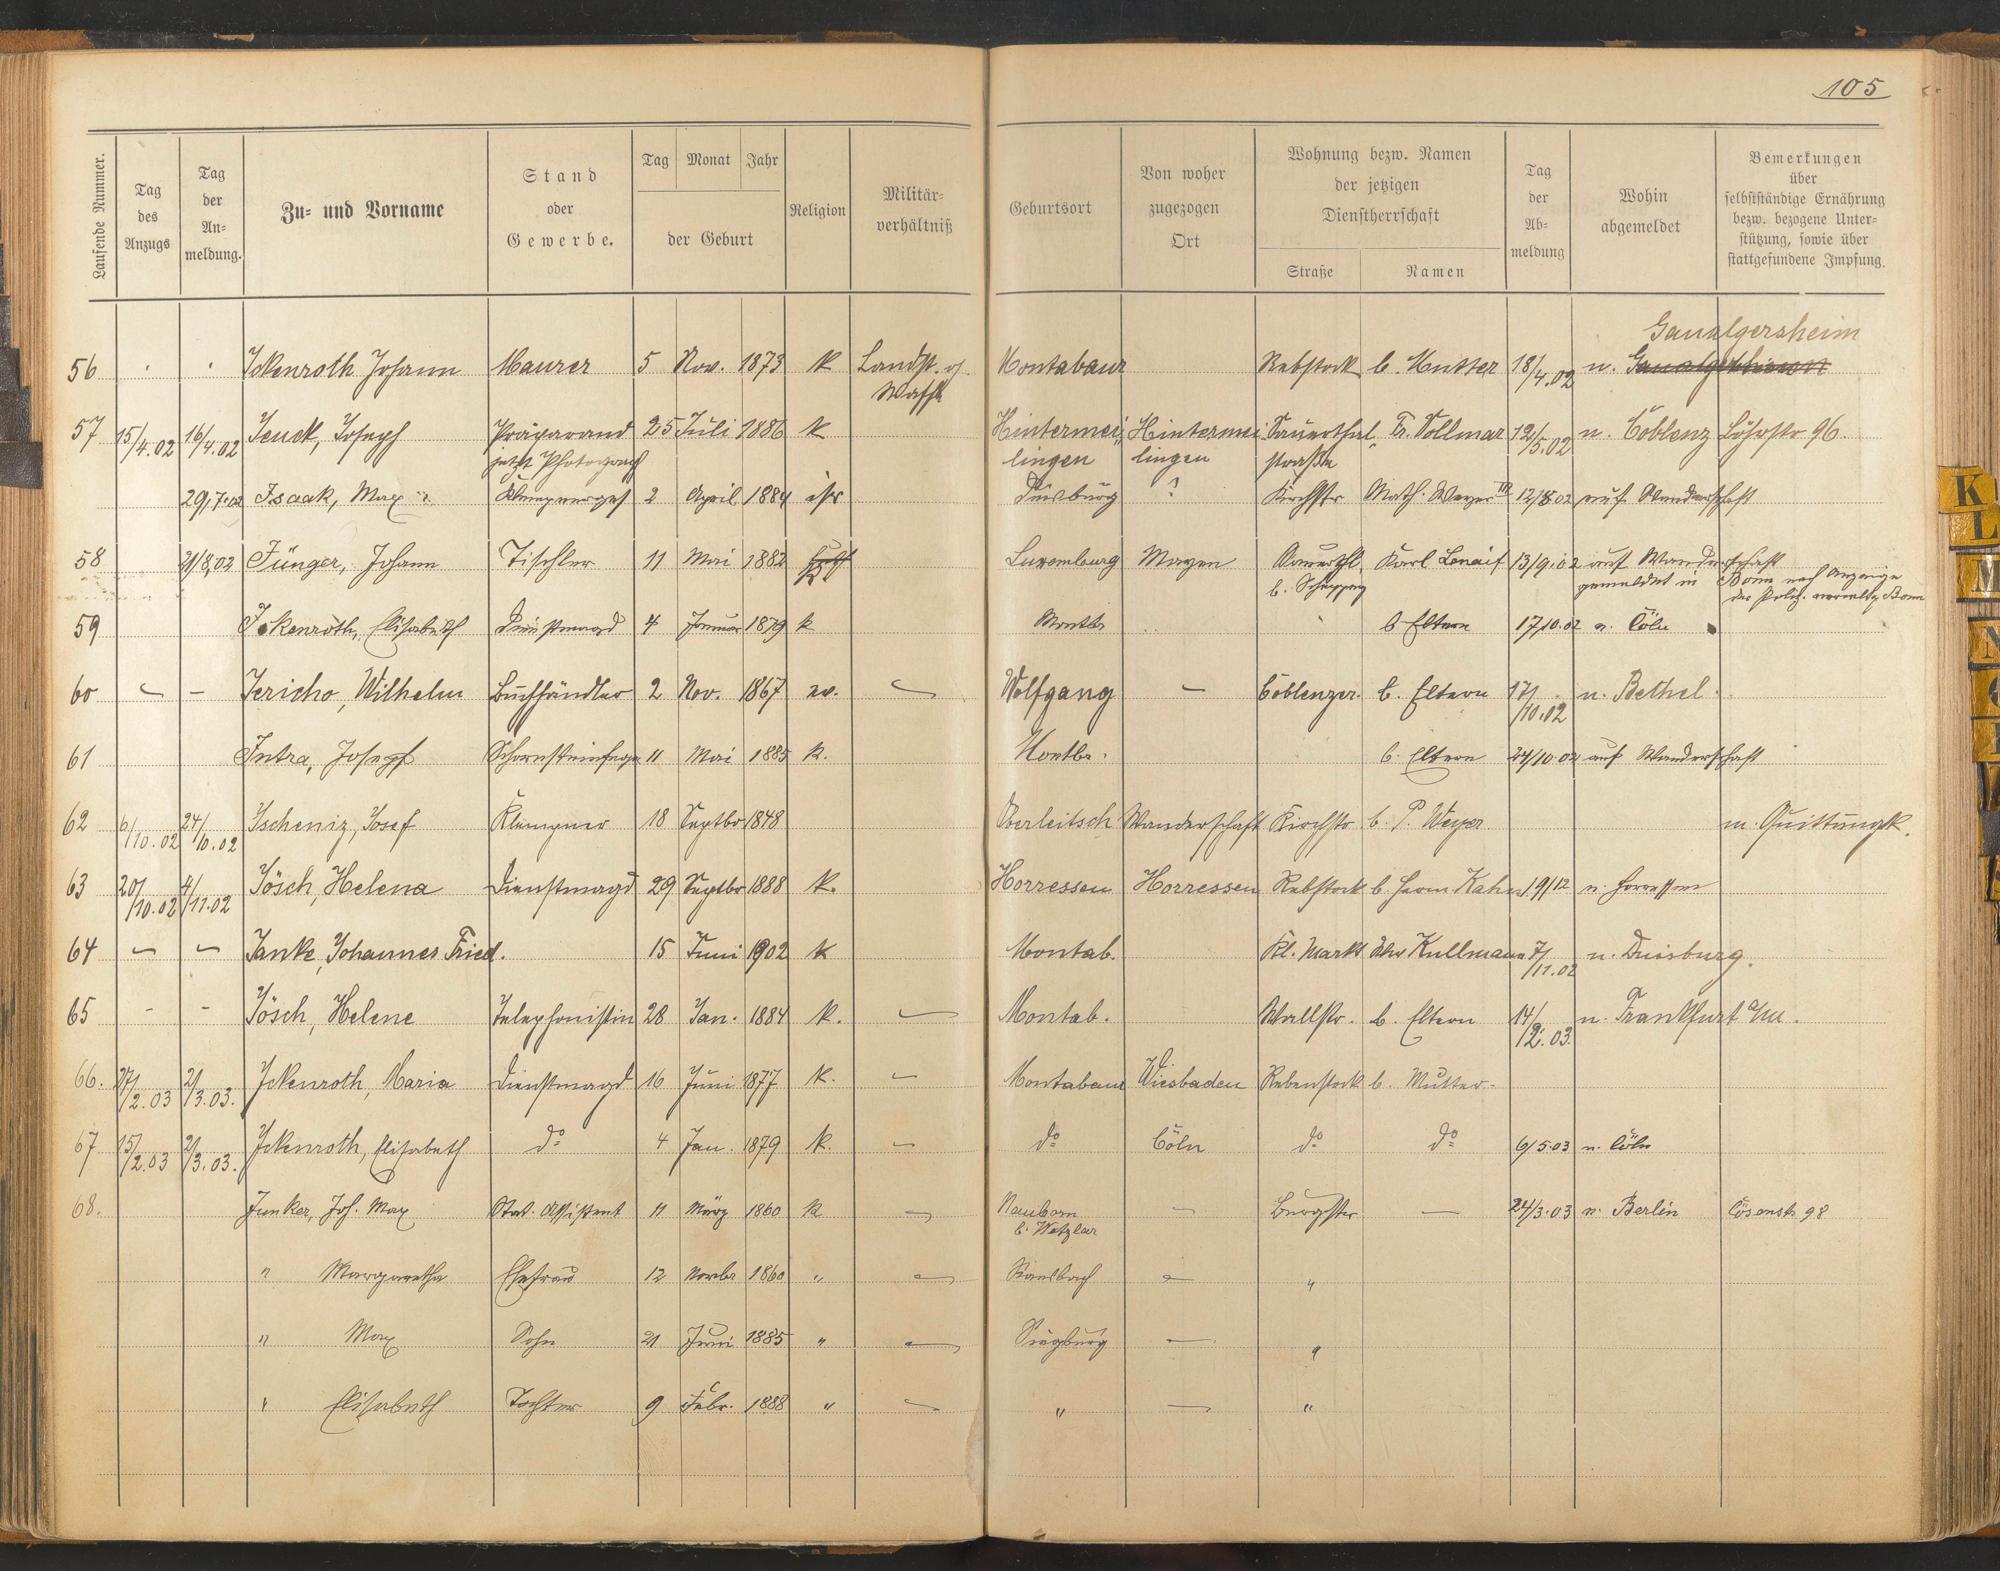 105
Laufende Nummer.
Tag des Anzugs
Tag der An-meldung.
Zu- und Vorname
Stand oder Gewerbe.
Tag Monat Jahr
der Geburt
Religion
Militär-verhältniß
Geburtsort
Von woher zugezogen Ort
Wohnung bezw. Namen der jetzigen Dienstherrschaft
Straße Namen
Tag der Ab-meldung
Wohin abgemeldet
Bemerkungen über selbstständige Ernährung bezw. bezogene Unter-stützung, sowie über stattgefundene Impfung.
Gaualgersheim
56 Ickenroth Johann Maurer 5 Nov. 1873 k Landst. o/. Waffe Montabaur Rebstock b. Mutter 18/4.02 n.
57 15/4.02 16/4.02 Jeuck, Joseph Präparand 25 Juli 1886 k Hintermei- Hintermei Sauerthal- Fr. Vollmar 12/5.02 n. Coblenz Löhrstr 96.
jetzt Photograph lingen lingen straße
29/7.02 Isaak, Max Klempnerges 2 April 1884 isr Duisburg ? Kirchstr Math. Weyer III 12/8 02 auf Wanderschaft
58 21/8.02 Jünger, Johann Tischler 11 Mai 1882 Luxemburg Mayen Sauerthl. Karl 13/9.02 auf Wanderschaft
gemeldet in Bonn nach Anzeige
der Poliz. verwaltg Bonn
59 Ickenroth, Elisabeth Dienstmagd 4 Januar 1879 k Montb. b Eltern 17/10.02 n. Cöln
60 – – Jericho, Wilhelm Buchhändler 2 Nov. 1867 ev. – Wolfgang – Coblenzer. b. Eltern 17/10.02 n. Bethel.
61 Intra, Joseph Schornsteinfeger 11 Mai 1885 k. Montbr. b. Eltern 24/10.02 auf Wanderschaft
62 6/10.02 24/10.02 Ischeniz, Josef Klempner 18 Septbr 1848 Oberleitsch Wanderschaft Kirchstr b. P. Weyer m. Quittungk.
63 20/10.02 4/11.02 Jösch, Helena Dienstmagd 29 Septbr 1888 k. Horressen Horressen Rebstock b. Herm. Kahn 19/12 n. Horressen
64 – – Janke, Johannes Fried. 15 Juni 1902 k Montab. Kl. Markt Kullmann 7/11.02 n. Duisburg.
65 - - Jösch, Helene Telephonistin 28 Jan. 1884 k. – Montab. Wallstr. b. Eltern 14/2.03. n. Frankfurt a/M.
66. 27/2.03 2/3.03. Ickenroth, Maria Dienstmagd 16 Juni 1877 k. – Montabaur Wiesbaden Rebenstock b. Mutter.
67 15/2.03 2/3.03. Ickenroth, Elisabeth do 4 Jan. 1879 k. – do Cöln do do 6/5.03 n. Cöln
68. Junker, Joh. Max Stat. Assistent 11 März 1860 k – Nauborn b. Wetzlar – Burgstr – 24/3.03 n. Berlin 98
" Margaretha Ehefrau 12 Novbr 1860 " – – "
" Max Sohn 21 Juni 1885 " – Siegburg – "
" Elisabeth Tochter 9 Febr. 1888 " – " – "
K
L
M
N
O